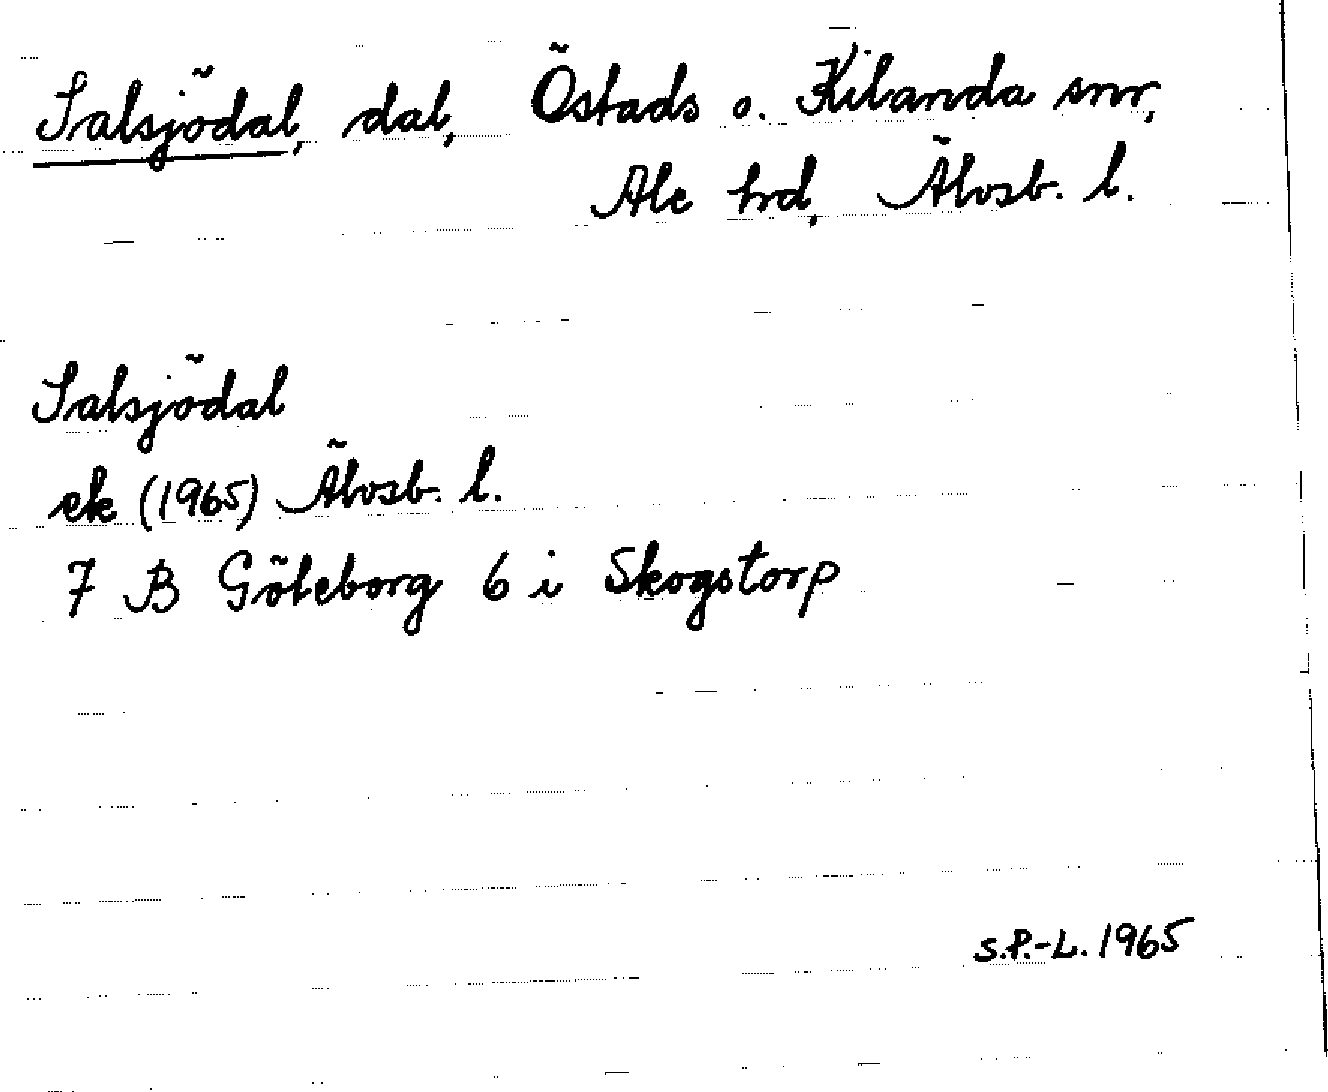 Salsjödal, dal, Östads o. Kilanda snr,
Ale hrd, Älvsb. l.
Salsjödal
ek (1965) Älvsb. l.
7 B Göteborg 6 i Skogstorp
S.P.-L. 1965